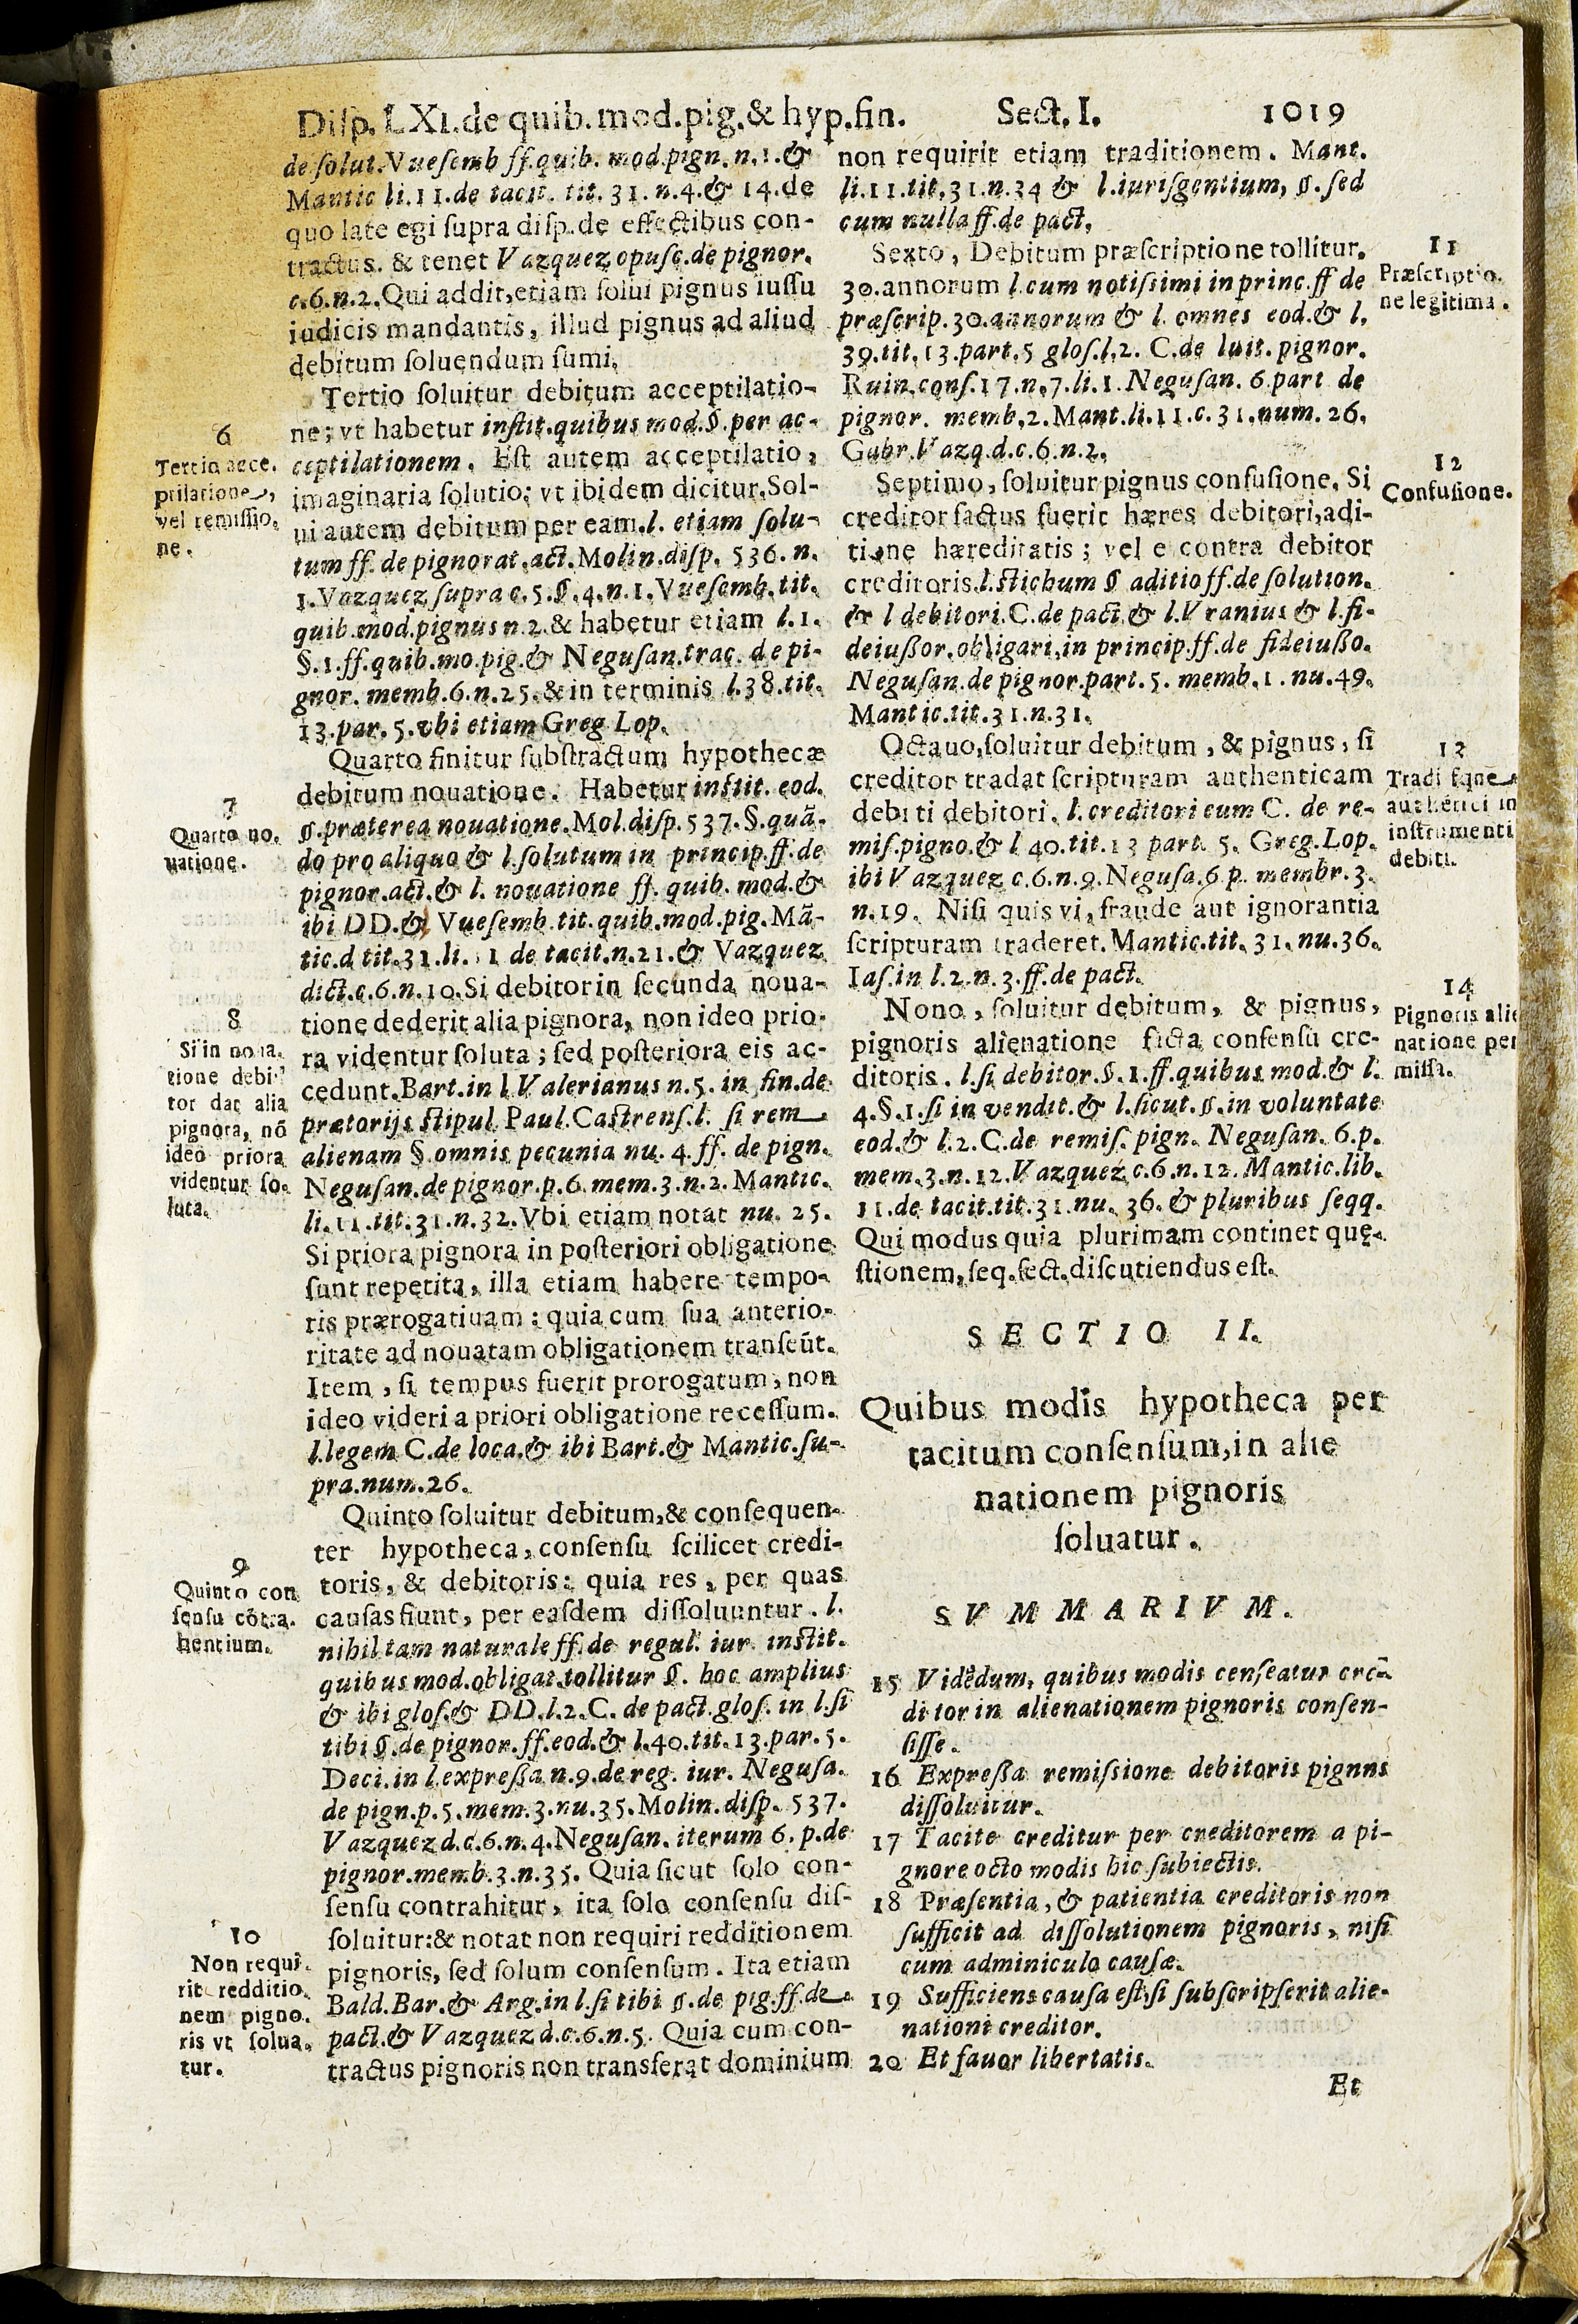 Diſp. LXI. de quib. mod. pig. & hyp. fin. Sect. I. 1019
de ſolut. Vueſemb ff. quib. mod. pign. n. 1. &
Mantic li. 11. de tacit. tit. 31. n. 4. & 14. de
quo late egi ſupra diſp. de effectibus con-
tractus. & tenet Vazquez opuſc. de pignor.
c. 6. n. 2. Qui addit, etiam ſolui pignus iuſſu
iudicis mandantis, illud pignus ad aliud
debitum ſoluendum ſumi.
Tertio ſoluitur debitum acceptilatio-
ne; vt habetur inſtit. quibus mod. §. per ac-
ceptilationem. Eſt autem acceptilatio,
imaginaria ſolutio; vt ibidem dicitur. Sol-
ui autem debitum per eam. l. etiam ſolu-
tum ff. de pignorat. act. Molin. diſp. 536. n.
1. Vazquez ſupra c. 5. §. 4. n. 1. Vueſemb. tit.
quib. mod. pignus n. 2. & habetur etiam l. 1.
§. 1. ff. quib. mo. pig. & Neguſan. trac. de pi-
gnor. memb. 6. n. 25. & in terminis l. 38. tit.
13. par. 5. vbi etiam Greg Lop.
Quarto finitur ſubſtractum hypothecæ
debitum nouatione. Habetur inſtit. eod.
§. præterea nouatione. Mol. diſp. 537. §. quã-
do pro aliquo & l. ſolutum in princip. ff. de
pignor. act. & l. nouatione ff. quib. mod. &
ibi DD. & Vueſemb. tit. quib. mod. pig. Mã-
tic. d tit. 31. li. 11 de tacit. n. 21. & Vazquez
dict. c. 6. n. 10. Si debitor in ſecunda noua-
tione dederit alia pignora, non ideo prio-
ra videntur ſoluta; ſed poſteriora eis ac-
cedunt. Bart. in l Valerianus n. 5. in fin. de
prætorijs ſtipul. Paul. Caſtrenſ. l. ſi rem
alienam §. omnis pecunia nu. 4. ff. de pign.
Neguſan. de pignor. p. 6. mem. 3. n. 2. Mantic.
li. 11. tit. 31. n. 32. Vbi etiam notat nu. 25.
Si priora pignora in poſteriori obligatione
ſunt repetita, illa etiam habere tempo-
ris prærogatiuam: quia cum ſua anterio-
ritate ad nouatam obligationem tranſeũt.
Item, ſi tempus fuerit prorogatum, non
ideo videri a priori obligatione receſſum.
l. legem C. de loca. & ibi Bart. & Mantic. ſu-
pra. num. 26.
Quinto ſoluitur debitum, & conſequen-
ter hypotheca, conſenſu ſcilicet credi-
toris, & debitoris: quia res, per quas
cauſas fiunt, per eaſdem diſſoluuntur. l.
nihil tam naturale ff. de regul. iur. inſtit.
quibus mod. obligat. tollitur §. hoc amplius
& ibi gloſ. & DD. l. 2. C. de pact. gloſ. in l. ſi
tibi §. de pignor. ff. eod. & l. 40. tit. 13. par. 5.
Deci. in l. expreßa n. 9. de reg. iur. Neguſa.
de pign. p. 5. mem. 3. nu. 35. Molin. diſp. 537.
Vazquez d. c. 6. n. 4. Neguſan. iterum 6. p. de
pignor. memb. 3. n. 35. Quia ſicut ſolo con-
ſenſu contrahitur, ita ſolo conſenſu diſ-
ſoluitur: & notat non requiri redditionem
pignoris, ſed ſolum conſenſum. Ita etiam
Bald. Bar. & Arg. in l. ſi tibi §. de pig. ff. de
pact. & Vazquez d. c. 6. n. 5. Quia cum con-
tractus pignoris non transferat dominium
6
Tertio acce.
ptilatione,
vel remiſſio.
ne.
7
Quarto no.
uatione.
8
Si in noua.
tione debi-
tor dat alia
pignora, nõ
ideo priora
videntur ſo.
luta.
9
Quinto con
ſenſu cõtra.
hentium.
10
Non requi.
rit redditio.
nem pigno.
ris vt ſolua.
tur.
non requirit etiam traditionem. Mant.
li. 11. tit. 31. n. 34 & l. iuriſgentium, §. ſed
cum nulla ff. de pact.
Sexto, Debitum præſcriptione tollitur.
30. annorum l. cum notiſsimi in princ. ff de
præſcrip. 30. annorum & l. omnes eod. & l.
39. tit. 13. part. 5 gloſ. l. 2. C. de luit. pignor.
Ruin. conſ. 17. n. 7. li. 1. Neguſan. 6 part de
pignor. memb. 2. Mant. li. 11. c. 31. num. 26.
Gabr. Vazq. d. c. 6. n. 2.
Septimo, ſoluitur pignus confuſione. Si
creditor factus fuerit hæres debitori, adi-
tione hæreditatis; vel e contra debitor
creditoris. l. ſtichum § aditio ff. de ſolution.
& l debitori. C. de pact. & l. Vranius & l. fi-
deiußor. obligari. in princip. ff. de fideiußo.
Neguſan. de pignor. part. 5. memb. 1. nu. 49.
Mantic. tit. 31. n. 31.
Octauo, ſoluitur debitum, & pignus, ſi
creditor tradat ſcripturam authenticam
debiti debitori. l. creditori eum C. de re-
miſ. pigno. & l 40. tit. 13 part. 5. Greg. Lop.
ibi Vazquez c. 6. n. 9. Neguſa. 6. p. membr. 3.
n. 19. Niſi quis vi, fraude aut ignorantia
ſcripturam traderet. Mantic. tit. 31. nu. 36.
Iaſ. in l. 2. n. 3. ff. de pact.
Nono, ſoluitur debitum, & pignus,
pignoris alienatione ficta conſenſu cre-
ditoris. l. ſi debitor. §. 1. ff. quibus mod. & l.
4. §. 1. ſi in vendit. & l. ſicut. §. in voluntate
eod. & l. 2. C. de remiſ. pign. Neguſan. 6. p.
mem. 3. n. 12. Vazquez c. 6. n. 12. Mantic. lib.
11. de tacit. tit. 31. nu. 36. & pluribus ſeqq.
Qui modus quia plurimam continet quę-
ſtionem, ſeq. ſect. diſcutiendus eſt.
SECTIO II.
Quibus modis hypotheca per
tacitum conſenſum, in alie
nationem pignoris
ſoluatur.
SVMMARIVM.
15 Vidēdum, quibus modis cenſeatur crē-
ditor in alienationem pignoris conſen-
ſiſſe.
16 Expreßa remiſsione debitoris pignns
diſſoluitur.
17 Tacite creditur per creditorem a pi-
gnore octo modis hic ſubiectis.
18 Præſentia, & patientia creditoris non
ſufficit ad diſſolutionem pignoris, niſi
cum adminiculo cauſæ.
19 Sufficiens cauſa eſt, ſi ſubſcripſerit alie-
nationi creditor.
20 Et fauor libertatis.
Et
11
Præſcriptio.
ne legitima.
12
Confuſione.
13
Traditione
authentici in
inſtrumenti
debiti.
14
Pignoris alie
natione per
miſſa.